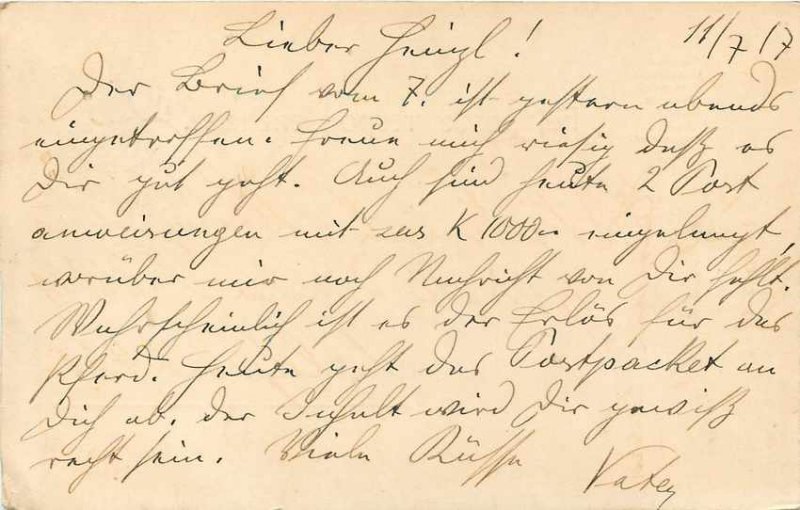 11/7 17
Lieber Heinzl!
Der Brief vom 7. ist gestern abends
eingetroffen. Freue mich riesig daß es
Dir gut geht. Auch sind heute 2 Post
anweisungen mit K 1000 eingelangt,
worüber mir noch Nachricht von Dir fehlt.
Wahrscheinlich ist es der Erlös für das
Pferd. Heute geht das Postpacket an
Dich ab. der Inhalt wird Dir gewiß
recht sein. Viele Küsse
Vater